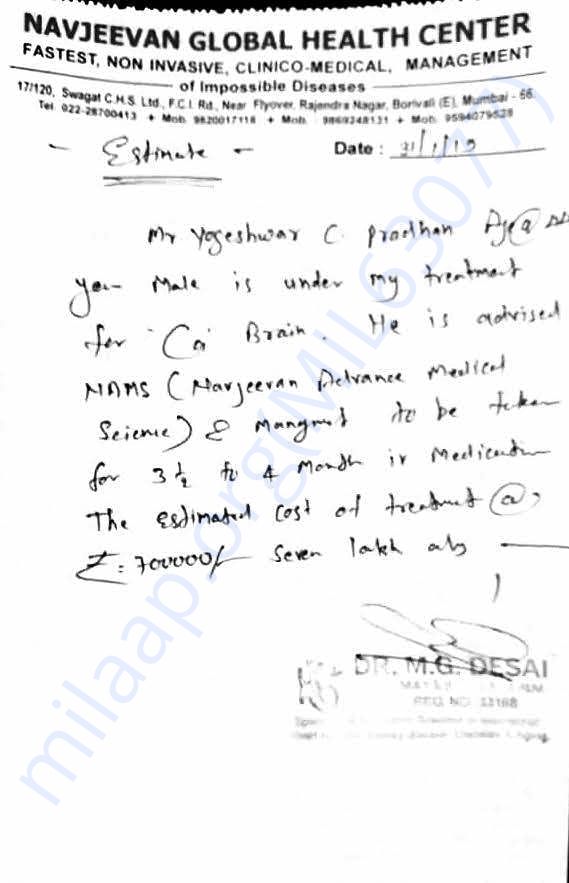 NAVJEEVAN GLOBAL HEALTH CENTER
FASTEST, NON INVASIVE, CLINICO-MEDICAL, MANAGEMENT
of Impossible Diseases
17/120, Swagat C.H.S. Ltd., F.C.I. Rd., Near Flyover, Rajendra Nagar, Borivali (E), Mumbai - 66.
Tel. 022-28700413 + Mob. 9820017118 + Mob. 9869248131 + Mob. 9594079528
- Estimate -
Date : 31/1/19
Mr Yogeshwar C. Pradhan Age@
Male is under my treatment
for Ca Brain. He is advised
NAMS (Navjeevan Advance Medical
Science) & Mangmet to be taken
for 3½ to 4 Month ir Medication
The estimated cost of treatment @
₹=700000/- Seven lakh
DR. M.G. DESAI
REG. NO.
milaap.org(MIL63077)